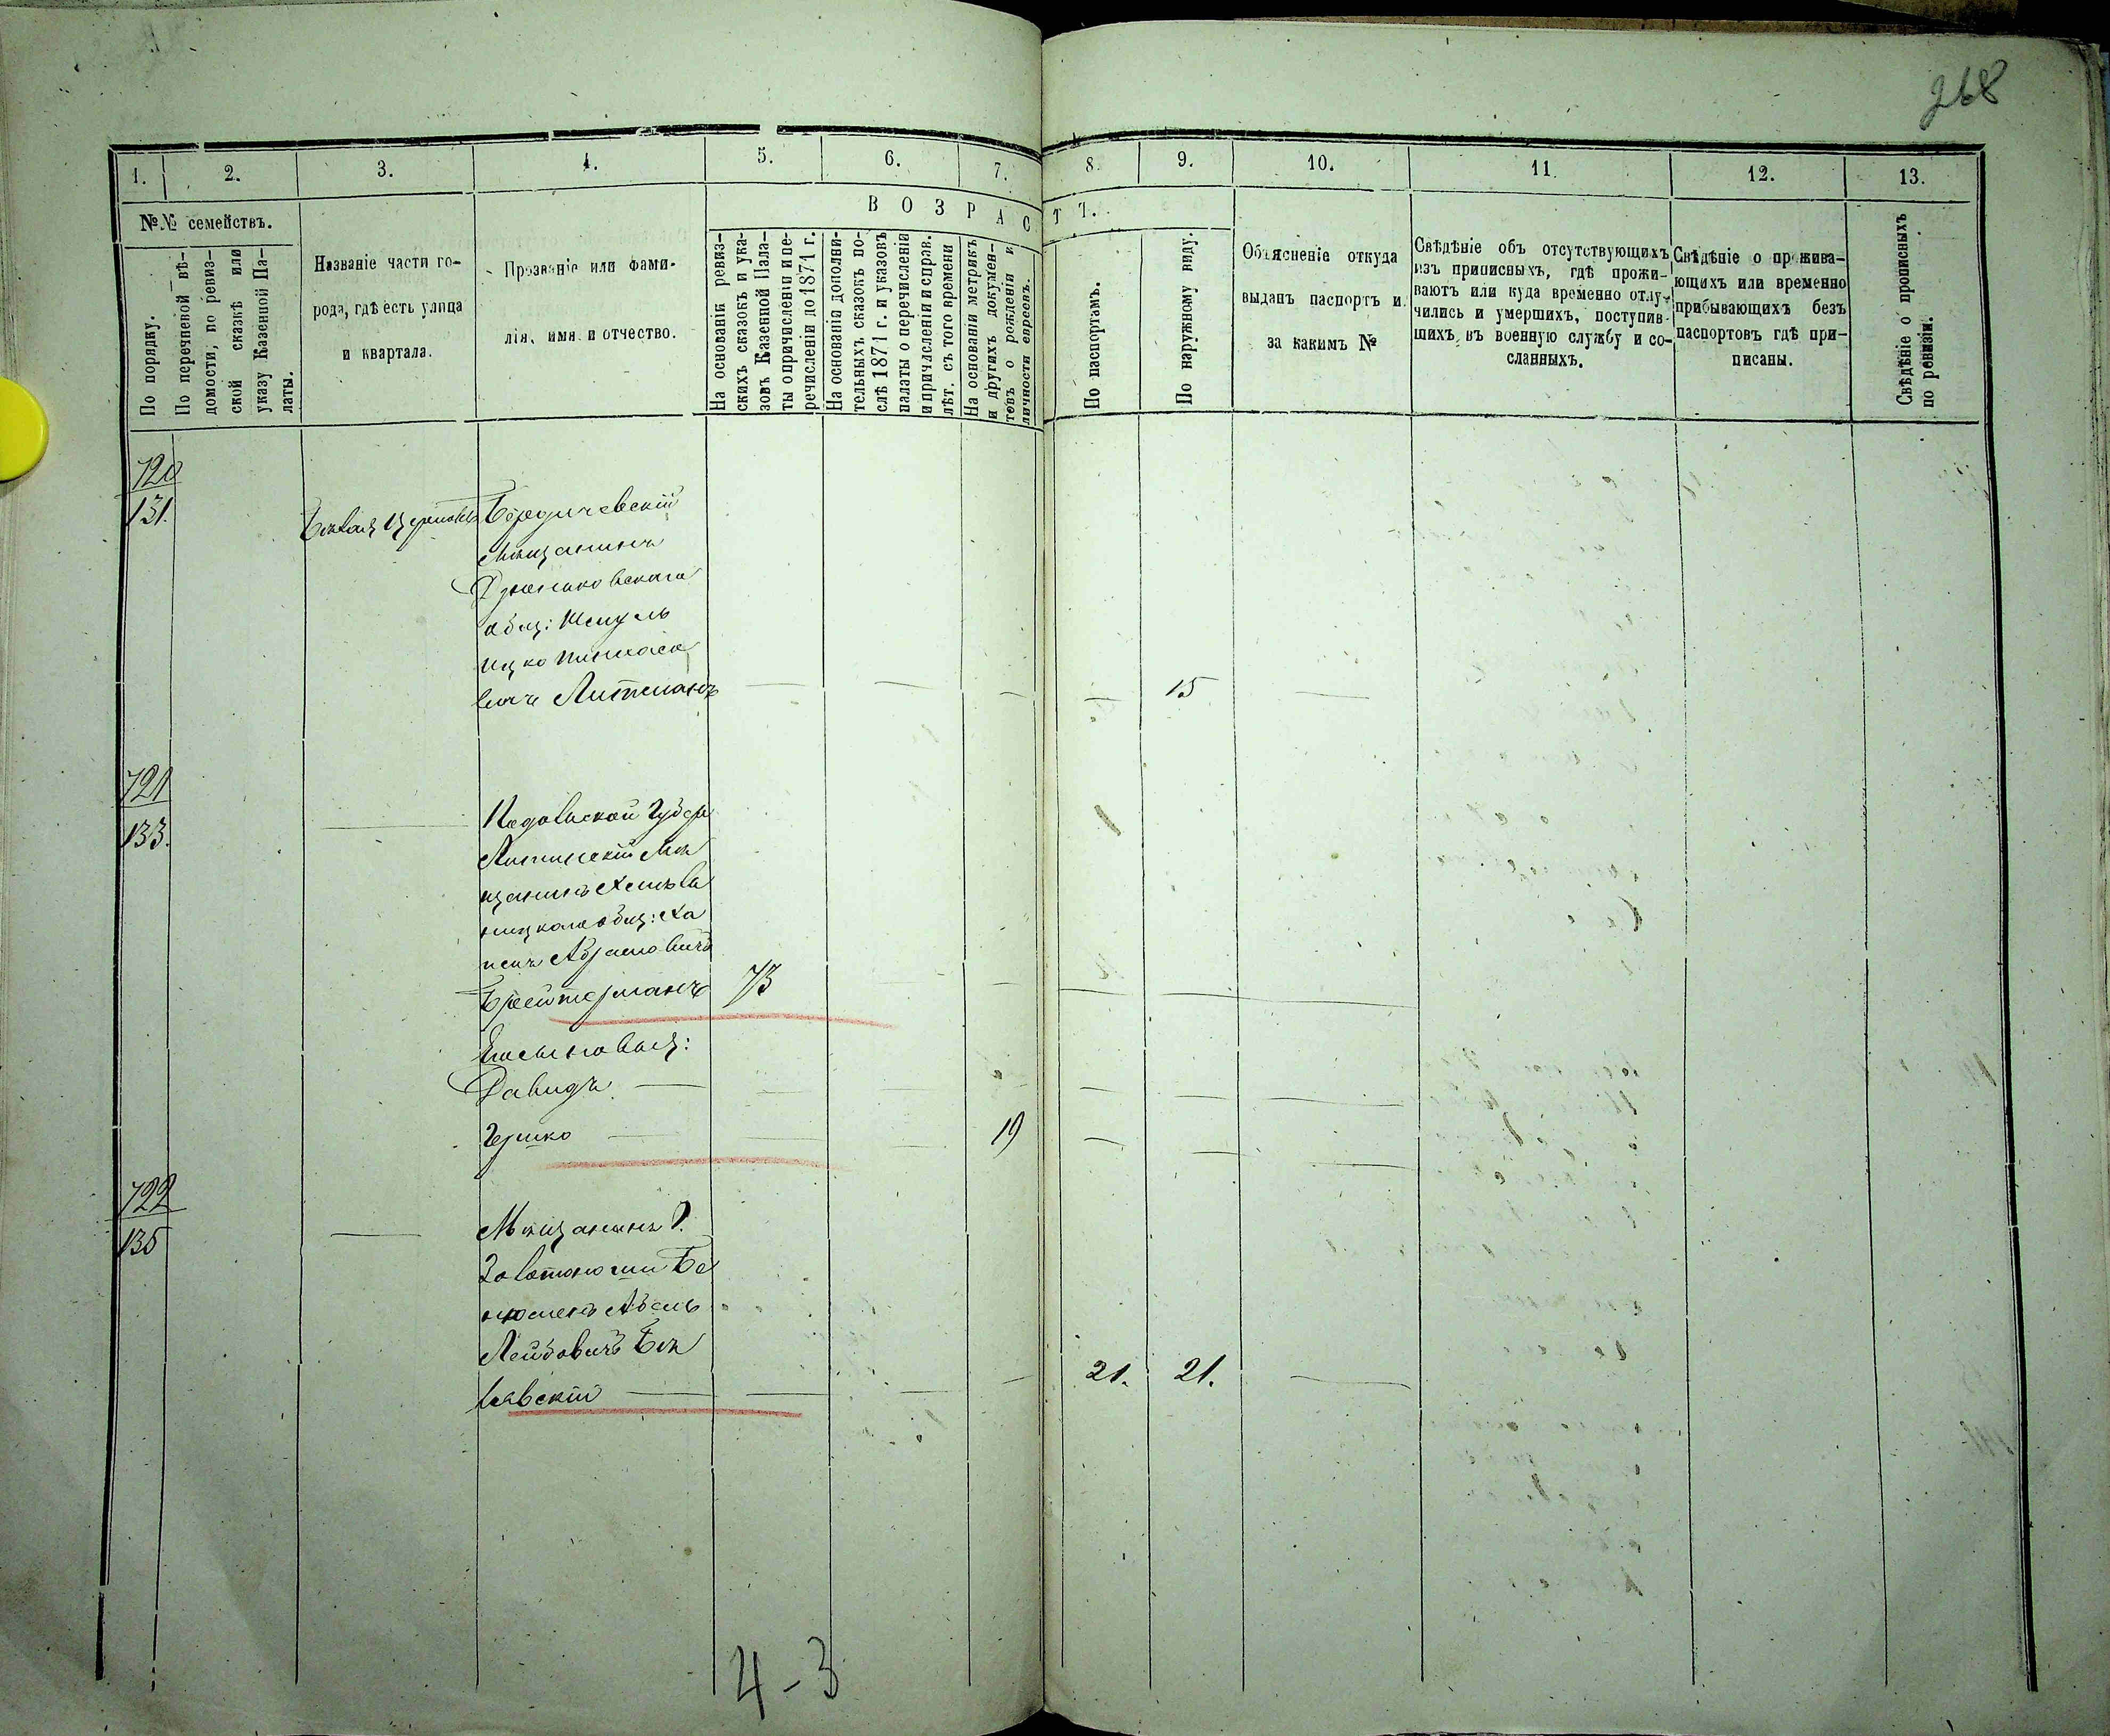 268
1. 2. 3. 4. 5. 6. 7. 8. 9. 10. 11. 12. 13.
№№ семействъ.
В О З Р А С Т Ъ.
По порядку.
По перечневой вѣ-
домости, по ревиз-
ской сказкѣ или
указу Казенной Па-
латы.
Названіе части го-
рода, гдѣ есть улица
и квартала.
Прозваніе или фами-
лія, имя и отчество.
На основаніи ревиз-
скихъ сказокъ и ука-
зовъ Казенной Пала-
ты о причисленіи и пе-
речисленіи до 1871 г.
На основаніи дополни-
тельныхъ сказокъ по-
слѣ 1871 г. и указовъ
палаты о перечисленіи
и причисленіи и справ.
лѣт. съ того времени
На основаніи метрикъ
и другихъ докумен-
товъ о рожденіи и
личности евреевъ.
По паспортамъ.
По наружному виду.
Объясненіе откуда
выданъ паспортъ и
за какимъ №
Свѣдѣніе объ отсутствующихъ
изъ приписныхъ, гдѣ прожи-
ваютъ или куда временно отлу-
чились и умершихъ, поступив-
шихъ въ военную службу и со-
сланныхъ.
Свѣдѣніе о прожива-
ющихъ или временно
прибывающихъ безъ
паспортовъ гдѣ при-
писаны.
Свѣдѣніе о прописныхъ
по ревизіи.
720
131.
Бердичевскій
мѣщанинъ
общ: Шмуль
Ицко Пинхасо
вичъ Литманъ — — — — 15 —
721
133.
— Подольской Губер
Литинскій мѣ
щанинъ Хмѣль
ницкаго общ: Ха
имъ Абрамовичъ
Брейтерманъ 73 — — — — —
Давидъ — — — — — —
Гершко — — — 19 — — —
722
135
— Мѣщанинъ г.
Золотоноши Бе
ньюменъ Абель
Лейбовичъ Бѣ
лявскій — — — — 21. 21. —
4-3